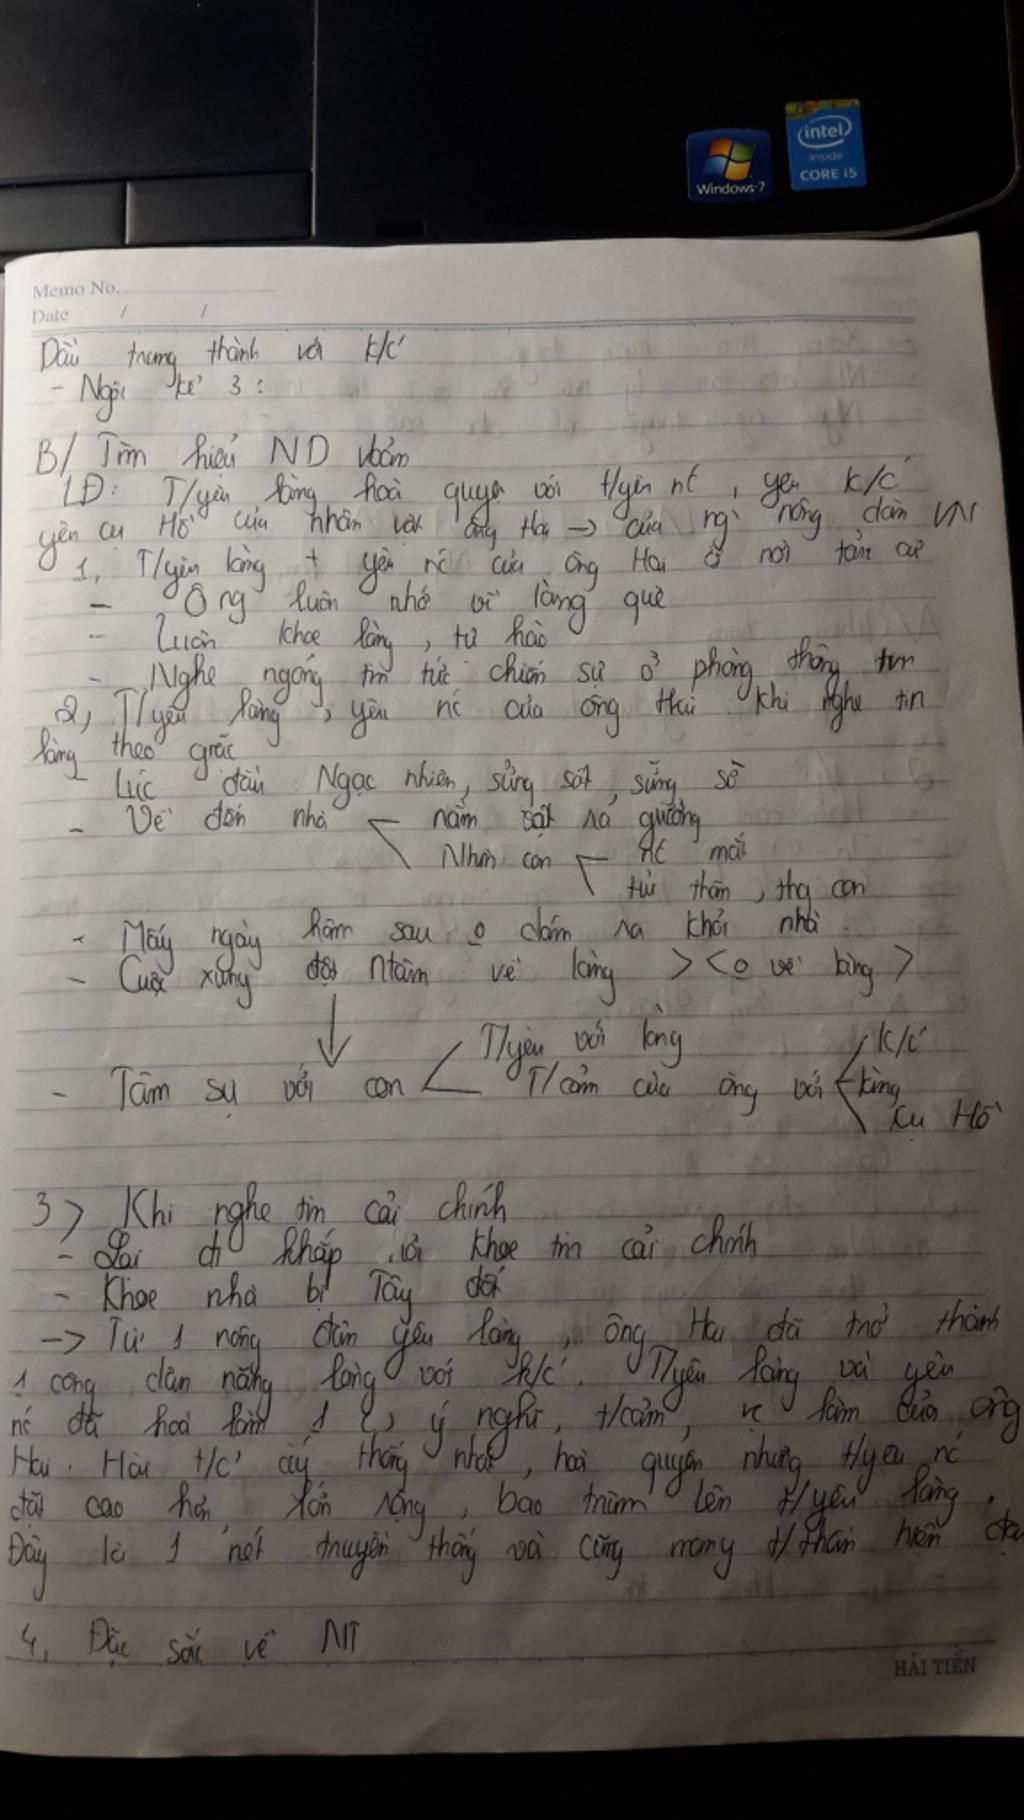 Windows 7
intel
inside
CORE i5
Memo No.
Date / /
Dầu trung thành với k/c'
- Ngôi kể 3 :
B/ Tìm hiểu ND vbản
LĐ: T/yêu làng hoà quyện với t/yêu nc', yêu k/c'
yêu cụ Hồ của nhân vật ông Hai -> của ng` nông dân VN
1, T/yêu làng + yêu nc' của ông Hai ở nơi tản cư
- Ông luôn nhớ về làng quê
- Luôn khoe làng, tự hào
- Nghe ngóng tin tức chiến sự ở phòng thông tin
2, T/yêu làng, yêu nc' của ông Hai khi nghe tin
làng theo giặc
Lúc đầu: Ngạc nhiên, sửng sốt, sững sờ
- Về đến nhà nằm vật ra giường
Nhìn con nc' mắt
tủi thân, thg con
- Mấy ngày hôm sau o dám ra khỏi nhà.
- Cuộc xung đột ntâm về làng >< o về làng >
T/yêu với làng
- Tâm sự với con T/cảm của ông với k/c'
làng
cụ Hồ
3> Khi nghe tin cải chính
- Lại đi khắp nơi khoe tin cải chính
- Khoe nhà bị Tây đốt
-> Từ 1 nông dân yêu làng, ông Hai đã trở thành
1 công dân nặng lòng với k/c'. T/yêu làng và yêu
nc' đã hoà làm 1 ý nghĩ, t/cảm, vc làm của ông
Hai. Hai t/c' ấy thống nhất, hoà quyện nhưng t/yêu nc'
đặt cao hơn, lớn rộng, bao trùm lên t/yêu làng.
Đây là 1 nét truyền thống và cũng mang t/thần hiện đại
4, Đặc sắc về NT
HẢI TIẾN